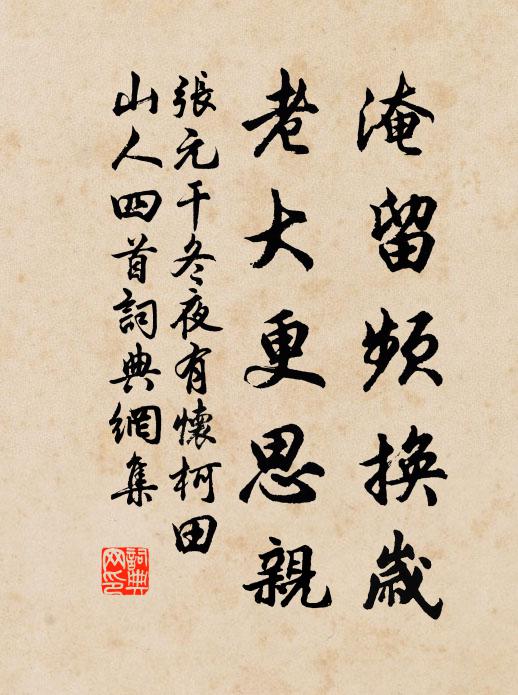 淹留頻換歲
老大更思親
張元干冬夜有懷柯田
山人四首詞典網集
詞典網印